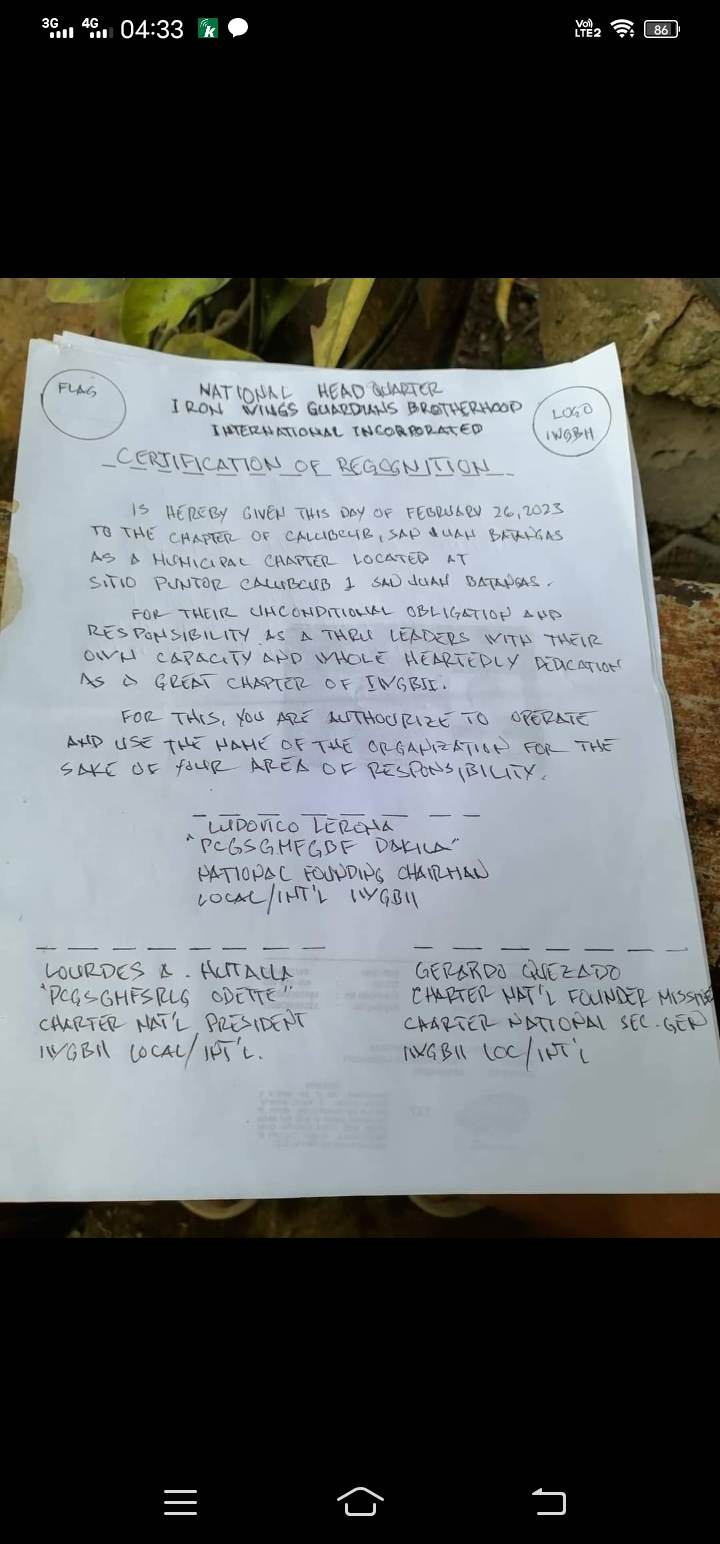 3G 4G 04:33 Vo)) LTE2 86
FLAG
NATIONAL HEAD QUARTER
IRON WINGS GUARDIANS BROTHERHOOD
INTERNATIONAL INCORPORATED
LOGO
IWGBII
CERTIFICATION OF RECOGNITION
IS HEREBY GIVEN THIS DAY OF FEBRUARY 26, 2023
TO THE CHAPTER OF CALUBCUB, SAN JUAN BATANGAS
AS A MUNICIPAL CHAPTER LOCATED AT
SITIO PUNTOR CALUBCUB 1 SAN JUAN BATANGAS.
FOR THEIR UNCONDITIONAL OBLIGATION AND
RESPONSIBILITY AS A THRU LEADERS WITH THEIR
OWN CAPACITY AND WHOLE HEARTEDLY DEDICATION
AS A GREAT CHAPTER OF IWGBII.
FOR THIS, YOU ARE AUTHOURIZE TO OPERATE
AND USE THE NAME OF THE ORGANIZATION FOR THE
SAKE OF YOUR AREA OF RESPONSIBILITY.
LUDOVICO LERONA
"PCGSGMFGBF DAKILA"
NATIONAL FOUNDING CHAIRMAN
LOCAL/INT'L IWGBII
LOURDES A. HUTALLA
"PCGSGMFSRLG ODETTE"
CHARTER NAT'L PRESIDENT
IWGBII LOCAL/INT'L.
GERARDO QUEZADO
CHARTER NAT'L FOUNDER
CHARTER NATIONAL SEC. GEN
IWGBII LOC/INT'L